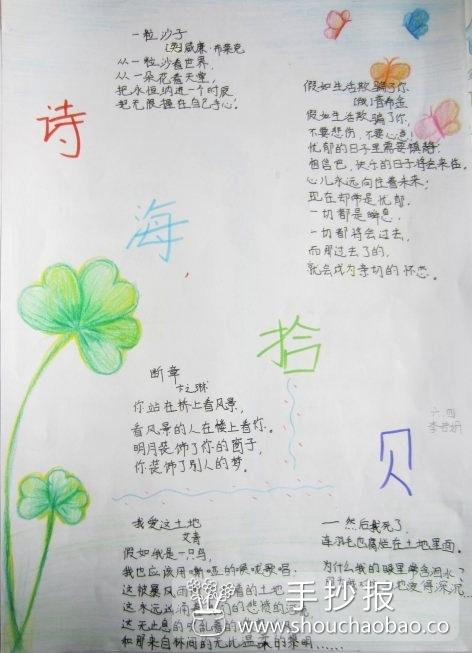 一粒沙子
[英]威廉·布莱克
从一粒沙看世界,
从一朵花看天堂,
把永恒纳进一个时辰
把无限握在自己手心。
诗
海
拾
贝
假如生活欺骗了你
(俄)普希金
假如生活欺骗了你,
不要悲伤,不要心急!
忧郁的日子里需要镇静:
相信吧,快乐的日子将会来临。
心儿永远向往着未来;
现在却常是忧郁.
一切都是瞬息.
一切都将会过去,
而那过去了的,
就会成为亲切的怀恋.
断章
卞之琳
你站在桥上看风景,
看风景的人在楼上看你。
明月装饰了你的窗子,
你装饰了别人的梦。
六.四
我爱这土地
艾青
假如我是一只鸟,
我也应该用嘶哑的喉咙歌唱:
这被暴风雨
着的土地
这永远汹涌着
们的悲愤的河
这无止息
和那来自林间的无比温柔的黎明……
——然后我死了,
连羽毛也腐烂在土地里面。
为什么我的眼里常含泪水?
地爱得深沉…
手抄报
www.shouchaobao.co